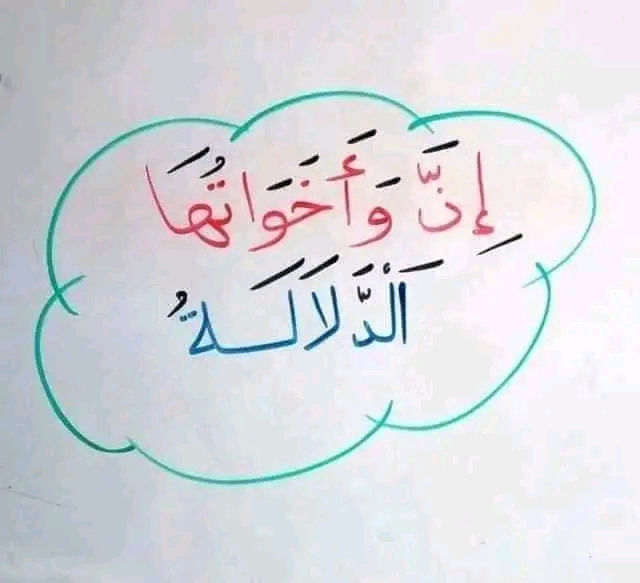 إِنَّ وَأَخَوَاتُهَا
اَلدَّلَالَةُ